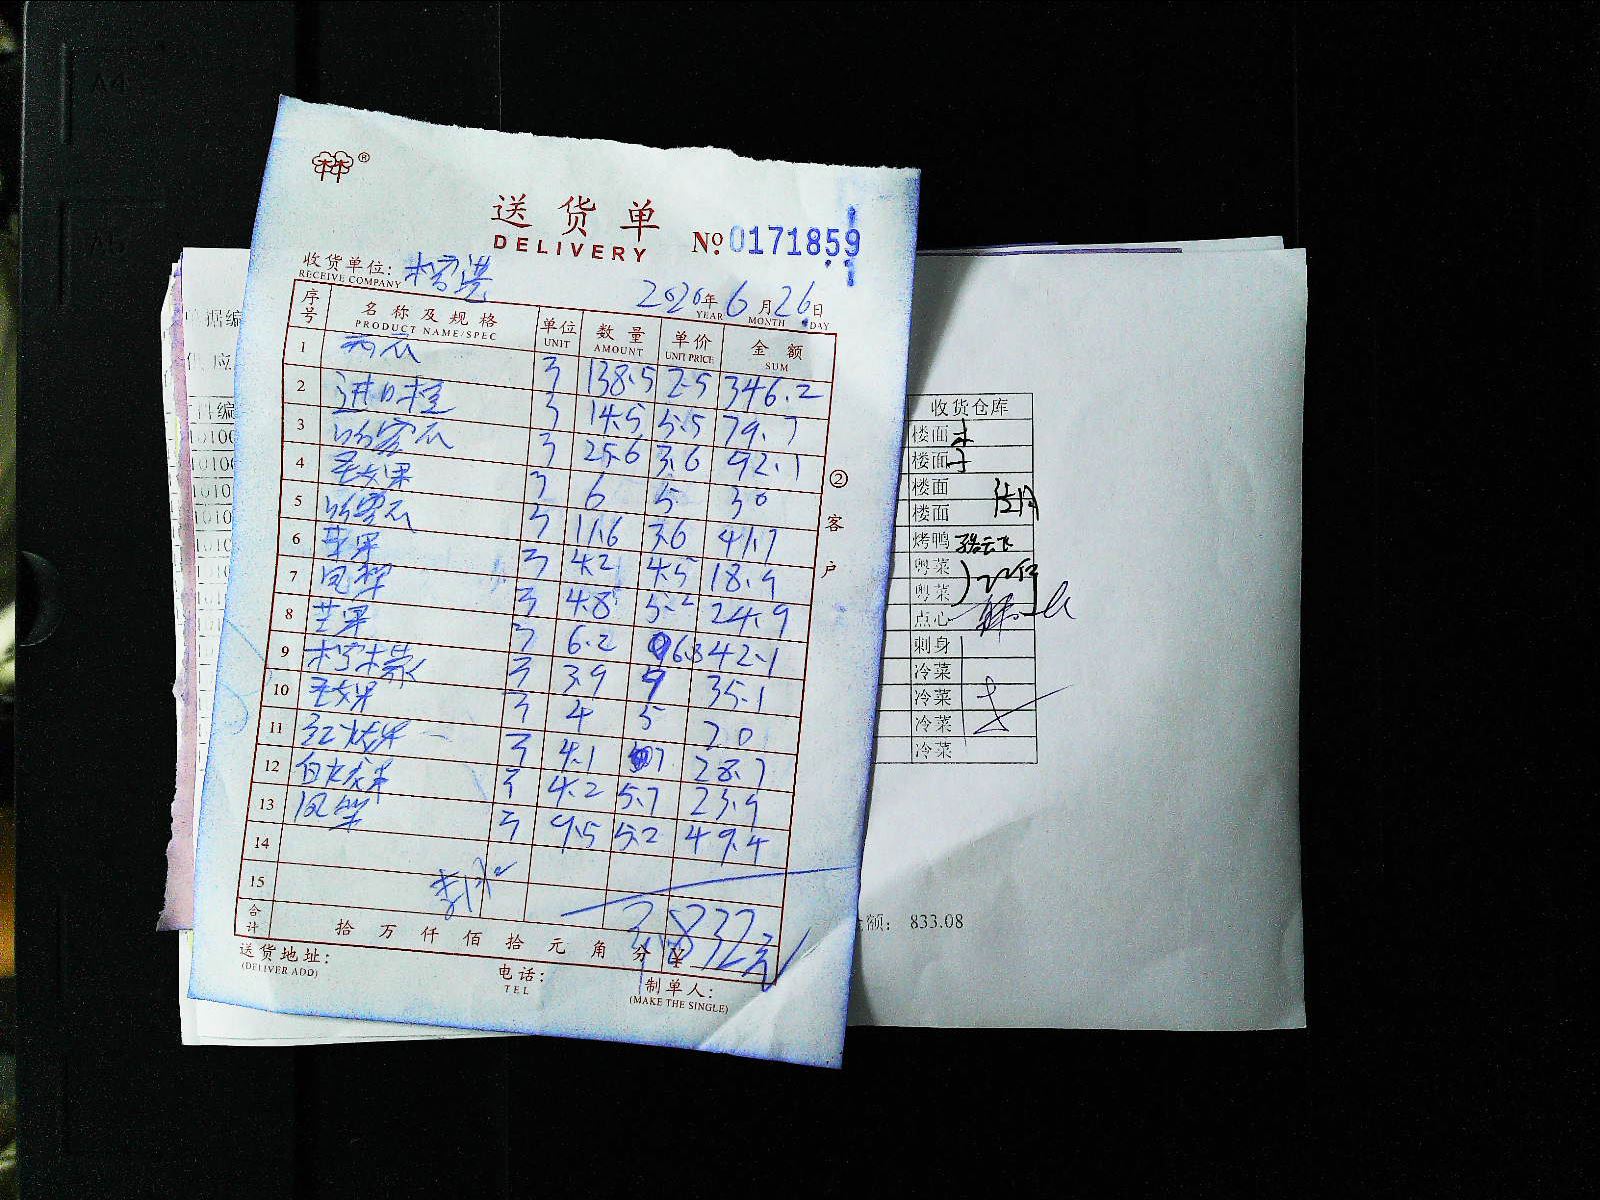 A4
A5
送货单
DELIVERY
№ 0171859
收货单位:
RECEIVE COMPANY
2020年6月26日
YEAR MONTH DAY
序号 名称及规格 单位 数量 单价 金额
PRODUCT NAME/SPEC UNIT AMOUNT UNIT PRICE SUM
1 西瓜 斤 138.5 2.5 346.2
2 进口橙 斤 14.5 5.5 79.7
3 哈密瓜 斤 25.6 3.6 92.1
4 圣女果 斤 6 5 30
5 哈密瓜 斤 11.6 3.6 41.7
6 苹果 斤 4.2 4.5 18.9
7 凤梨 斤 4.8 5.2 24.9
8 芒果 斤 6.2 6.8 42.1
9 柠檬 斤 3.9 9 35.1
10 圣女果 斤 4 5 20
11 红火龙果 斤 4.1 7 28.7
12 白火龙果 斤 4.2 5.7 23.9
13 凤梨 斤 9.5 5.2 49.4
14
15
合计 拾万仟佰拾元角分 ¥ 832元
送货地址:
(DELIVER ADD)
电话:
TEL
制单人:
(MAKE THE SINGLE)
②客户
据编
供应
件编
10100
10100
1010
1010
收货仓库
楼面
楼面
楼面
楼面
烤鸭
粤菜
粤菜
点心
刺身
冷菜
冷菜
冷菜
冷菜
金额: 833.08